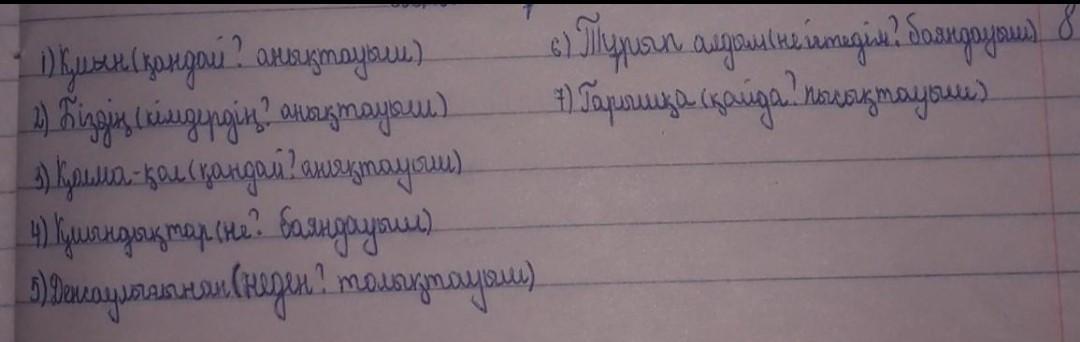 1) Қиын (қандай? анықтауыш)
2) Біздің (кімдердің? анықтауыш)
3) Қолма-қол (қандай? анықтауыш)
4) Қиындықтар (не? баяндауыш)
5) Денсаулығынан (неден? толықтауыш)
6) Тұрып алдым (не істедім? баяндауыш) 8
7) Ғарышқа (қайда? пысықтауыш)